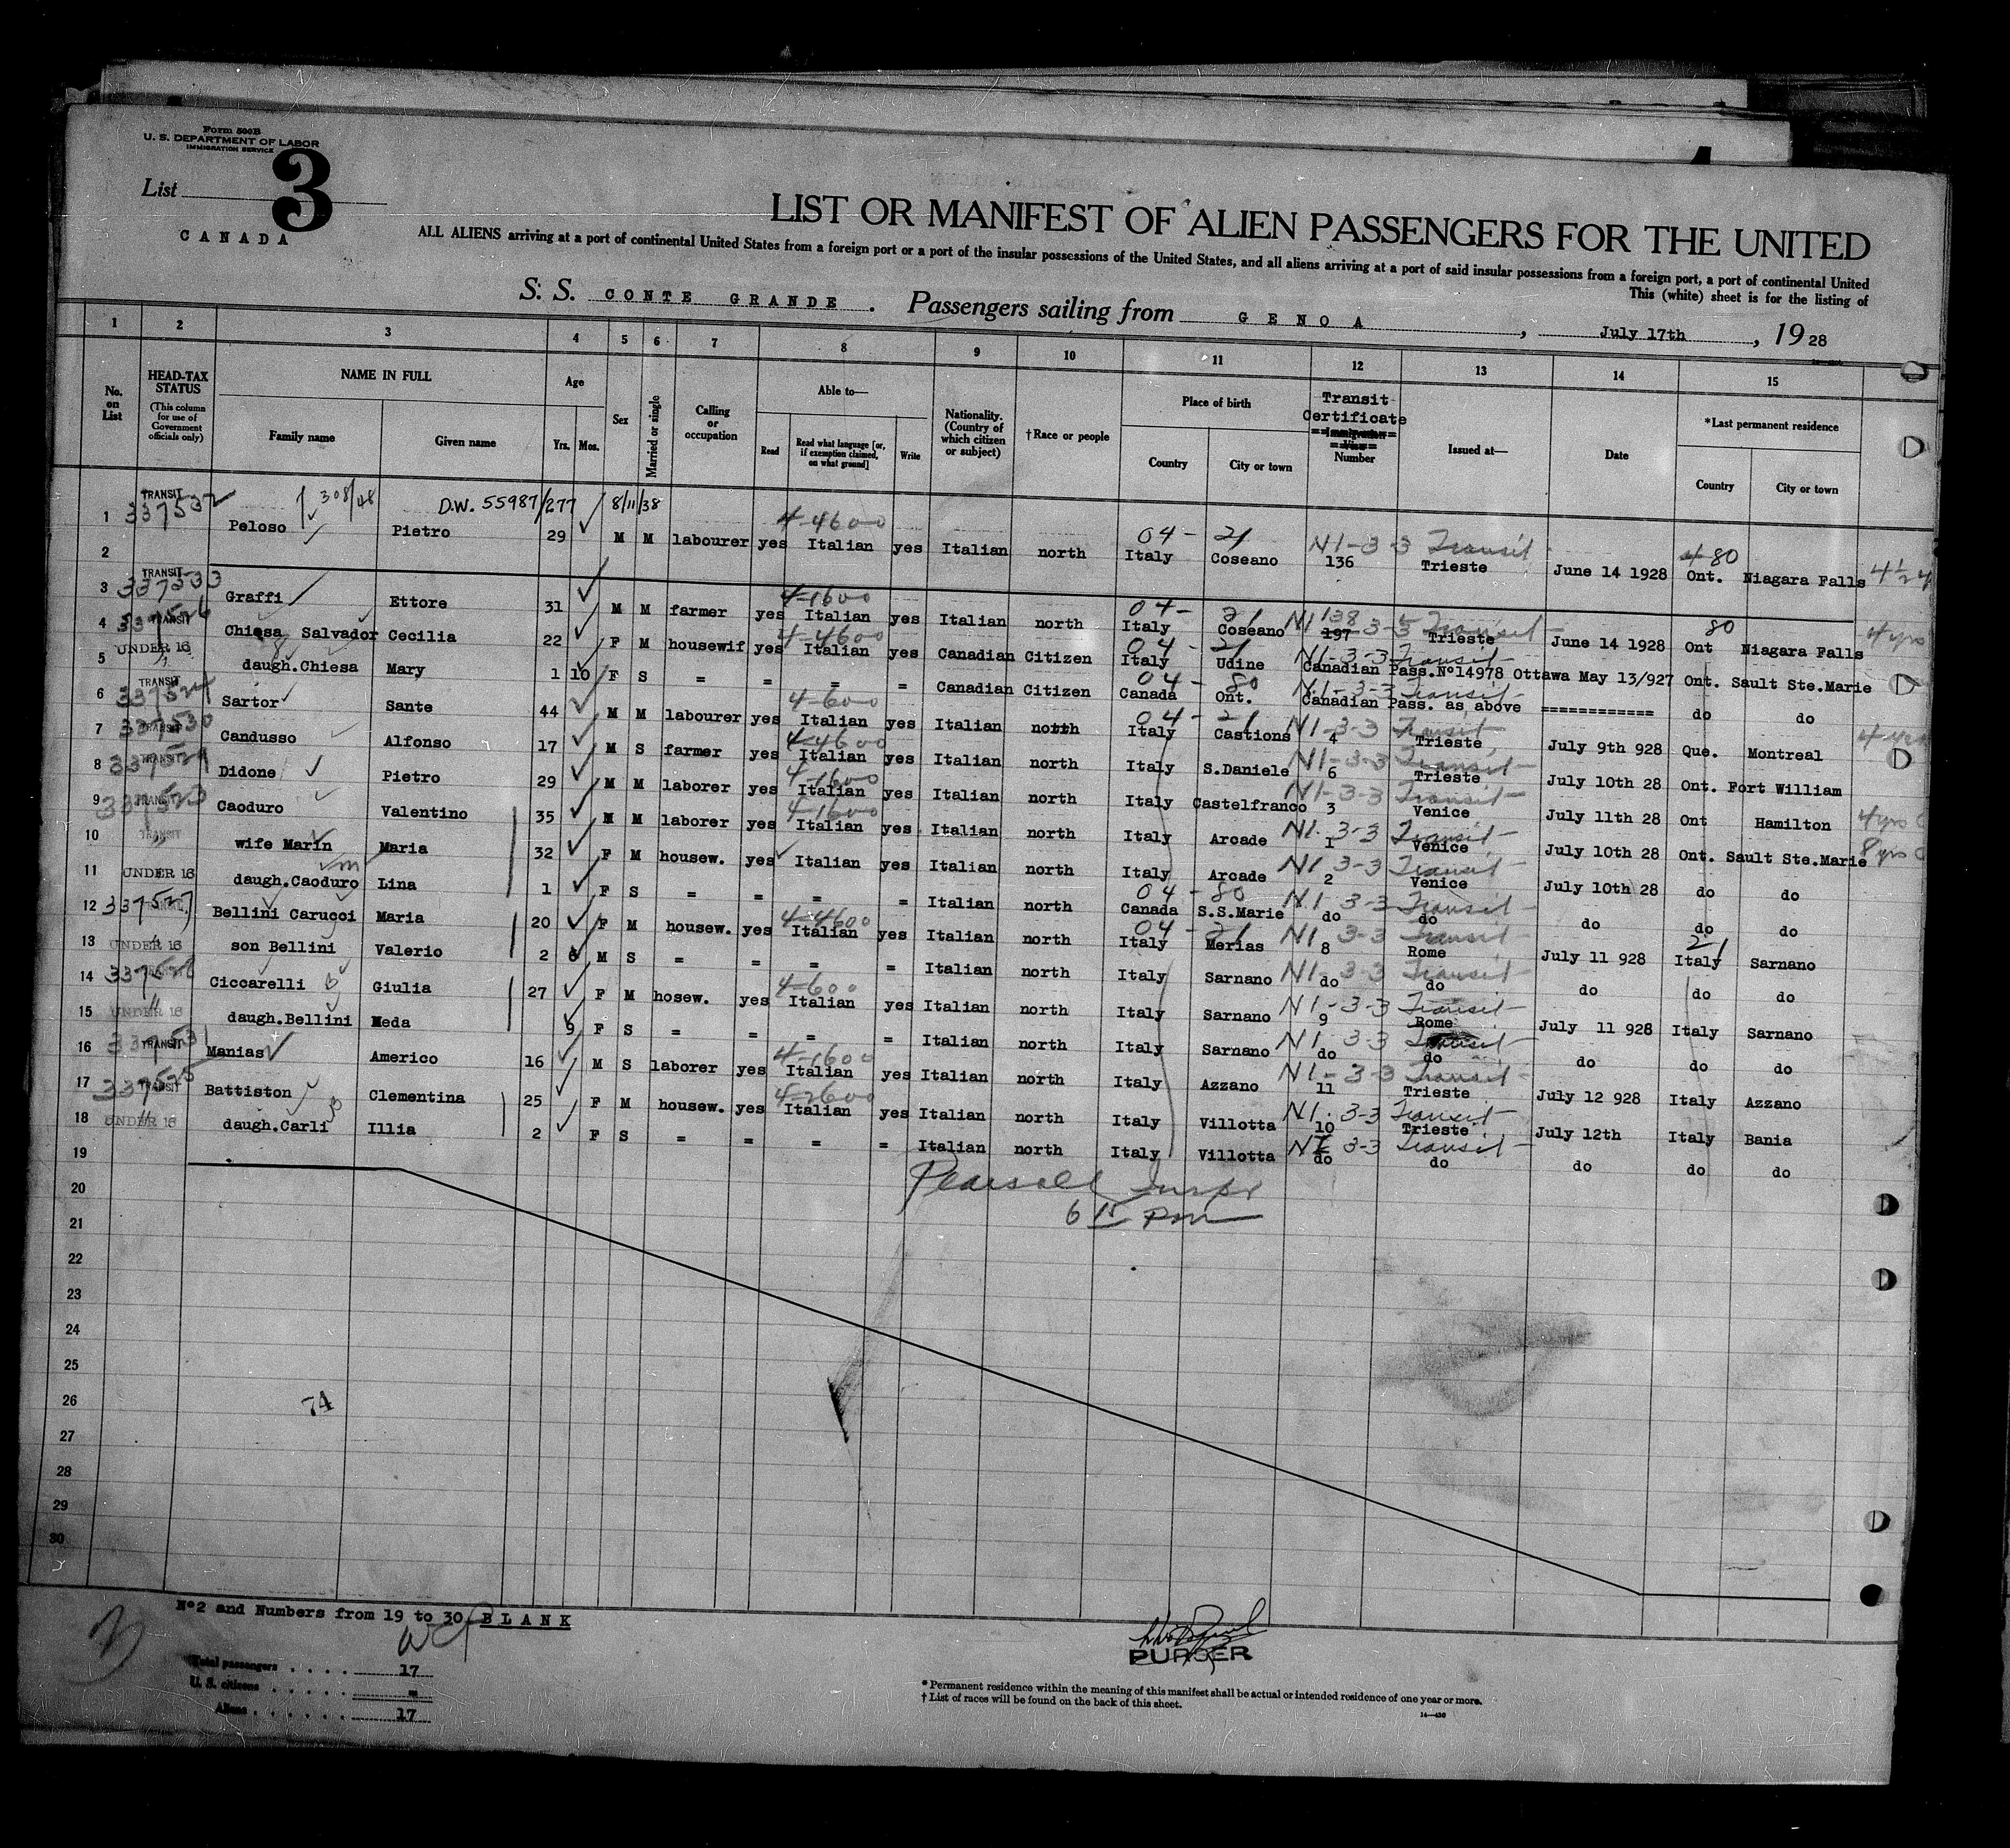 Form 500B
U. S. DEPARTMENT OF LABOR
IMMIGRATION SERVICE
List 3
CANADA
LIST OR MANIFEST OF ALIEN PASSENGERS FOR THE UNITED
ALL ALIENS arriving at a port of continental United States from a foreign port or a port of the insular possessions of the United States, and all aliens arriving at a port of said insular possessions from a foreign port, a port of continental United
This (white) sheet is for the listing of
S. S. CONTE GRANDE. Passengers sailing from GENOA, July 17th, 1928
1 2 3 4 5 6 7 8 9 10 11 12 13 14 15
No. on List
HEAD-TAX STATUS (This column for use of Government officials only)
NAME IN FULL Family name Given name
Age Yrs. Mos.
Sex
Married or single
Calling or occupation
Able to— Read Read what language [or, if exemption claimed, on what ground] Write
Nationality. (Country of which citizen or subject)
†Race or people
Place of birth Country City or town
Transit Certificate Number
Issued at—
Date
*Last permanent residence Country City or town
D.W. 55987/277 8/11/38 308/48
1 TRANSIT 337532 Peloso Pietro 29 M M labourer yes 4-4600 Italian yes Italian north 04- 21 Italy Coseano N1-3-3 Transit 136 Trieste June 14 1928 80 Ont. Niagara Falls
2
3 TRANSIT 337533 Graffi Ettore 31 M M farmer yes 4-1600 Italian yes Italian north 04- 21 Italy Coseano N1 138 197 3-3 Transit Trieste June 14 1928 80 Ont Niagara Falls 4 yrs
4 TRANSIT Chiesa Salvador Cecilia 22 F M housewif yes 4-4600 Italian yes Canadian Citizen 04- 21 Italy Udine N1-3-3 Transit Canadian Pass.Nº14978 Ottawa May 13/927 Ont. Sault Ste.Marie
5 UNDER 16 daugh.Chiesa Mary 1 10 F S = = = = Canadian Citizen 04- 80 Canada Ont. N1-3-3 Transit Canadian Pass. as above ============ do do
6 TRANSIT Sartor Sante 44 M M labourer yes 4-600 Italian yes Italian north 04- 21 Italy Castions N1-3-3 Transit 4 Trieste July 9th 928 Que. Montreal
7 TRANSIT 337530 Candusso Alfonso 17 M S farmer yes 4-4600 Italian yes Italian north Italy S.Daniele N1-3-3 Transit 6 Trieste July 10th 28 Ont. Fort William
8 TRANSIT Didone Pietro 29 M M laborer yes 4-1600 Italian yes Italian north Italy Castelfranco N1-3-3 Transit 3 Venice July 11th 28 Ont Hamilton 4 yrs
9 TRANSIT 337523 Caoduro Valentino 35 M M laborer yes 4-1600 Italian yes Italian north Italy Arcade N1-3-3 Transit 1 Venice July 10th 28 Ont. Sault Ste.Marie 8 yrs
10 TRANSIT wife Marin Maria 32 F M housew. yes Italian yes Italian north Italy Arcade N1 3-3 Transit 2 Venice July 10th 28 do do
11 UNDER 16 daugh.Caoduro Lina 1 F S = = = = Italian north 04- 80 Canada S.S.Marie N1 3-3 Transit do do do do do
12 337527 Bellini Carucci Maria 20 F M housew. yes 4-4600 Italian yes Italian north 04- 21 Italy Merias N1 3-3 Transit 8 Rome July 11 928 21 Italy Sarnano
13 UNDER 16 son Bellini Valerio 2 6 M S = = = = Italian north Italy Sarnano N1 3-3 Transit do do do do do
14 Ciccarelli Giulia 27 F M hosew. yes 4-600 Italian yes Italian north Italy Sarnano N1-3-3 Transit 9 Rome July 11 928 Italy Sarnano
15 UNDER 16 daugh.Bellini Neda 9 F S = = = = Italian north Italy Sarnano N1 3-3 Transit do do do do do
16 TRANSIT 337531 Manias Americo 16 M S laborer yes 4-1600 Italian yes Italian north Italy Azzano N1-3-3 Transit 11 Trieste July 12 928 Italy Azzano
17 TRANSIT 337525 Battiston Clementina 25 F M housew. yes 4-2600 Italian yes Italian north Italy Villotta N1 3-3 Transit 10 Trieste July 12th Italy Bania
18 UNDER 16 daugh.Carli Illia 2 F S = = = = Italian north Italy Villotta N1 3-3 Transit do do do do do
19
20
21
22
23
24
25
26
27
28
29
30
Pearsall Inspr
6 15 pm
74
Nº2 and Numbers from 19 to 30 BLANK
Total passengers . . . . 17
U. S. citizens . . . . . =
Aliens . . . . . . 17
PURSER
* Permanent residence within the meaning of this manifest shall be actual or intended residence of one year or more.
† List of races will be found on the back of this sheet.
14—430